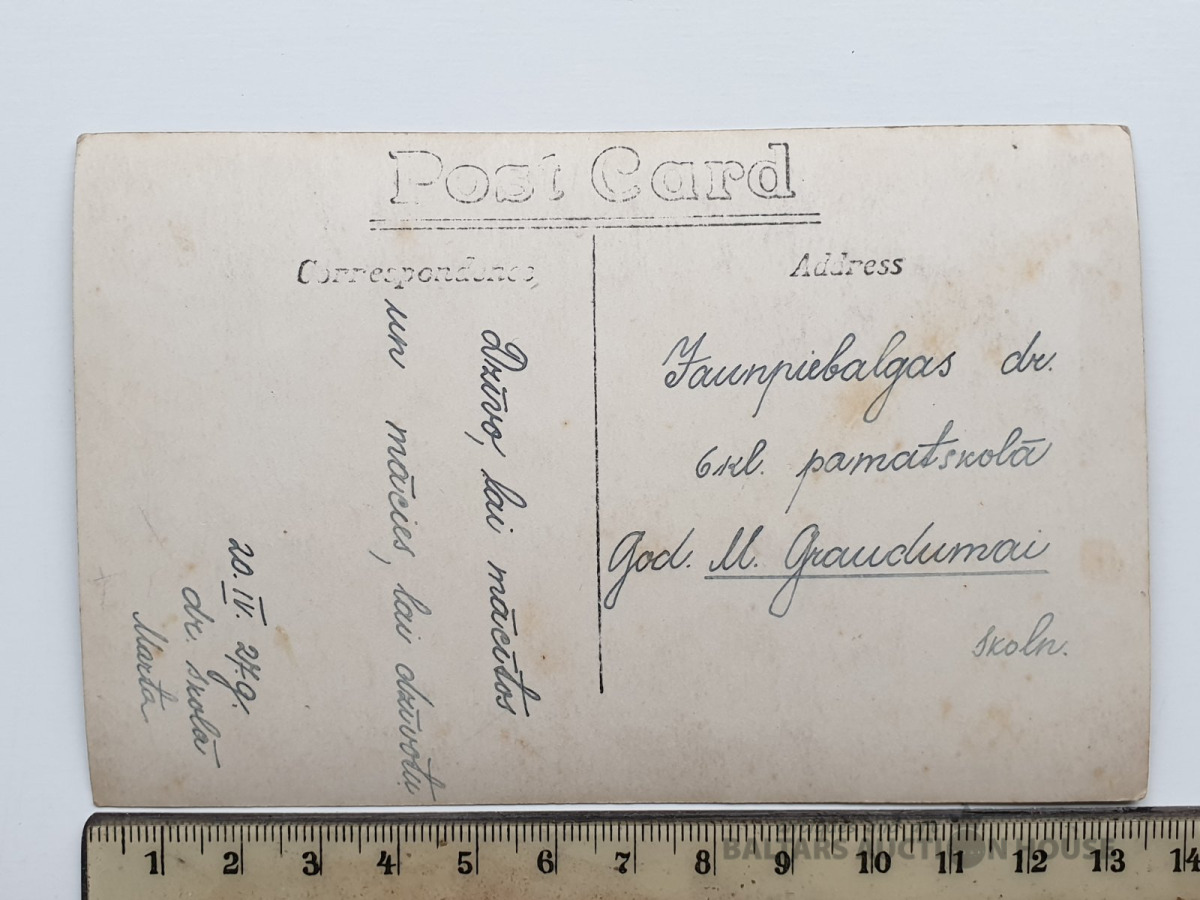 Post Card
Correspondence,
Address
Dzīvo, lai mācītos
un mācies, lai dzīvotu
20. IV. 27.g.
dr. skolā
Marta
Jaunpiebalgas dr.
6kl. pamatskolā
God. M. Graudumai
skoln.
1 2 3 4 5 6 7 8 9 10 11 12 13 14
BALTARS AUCTION HOUSE